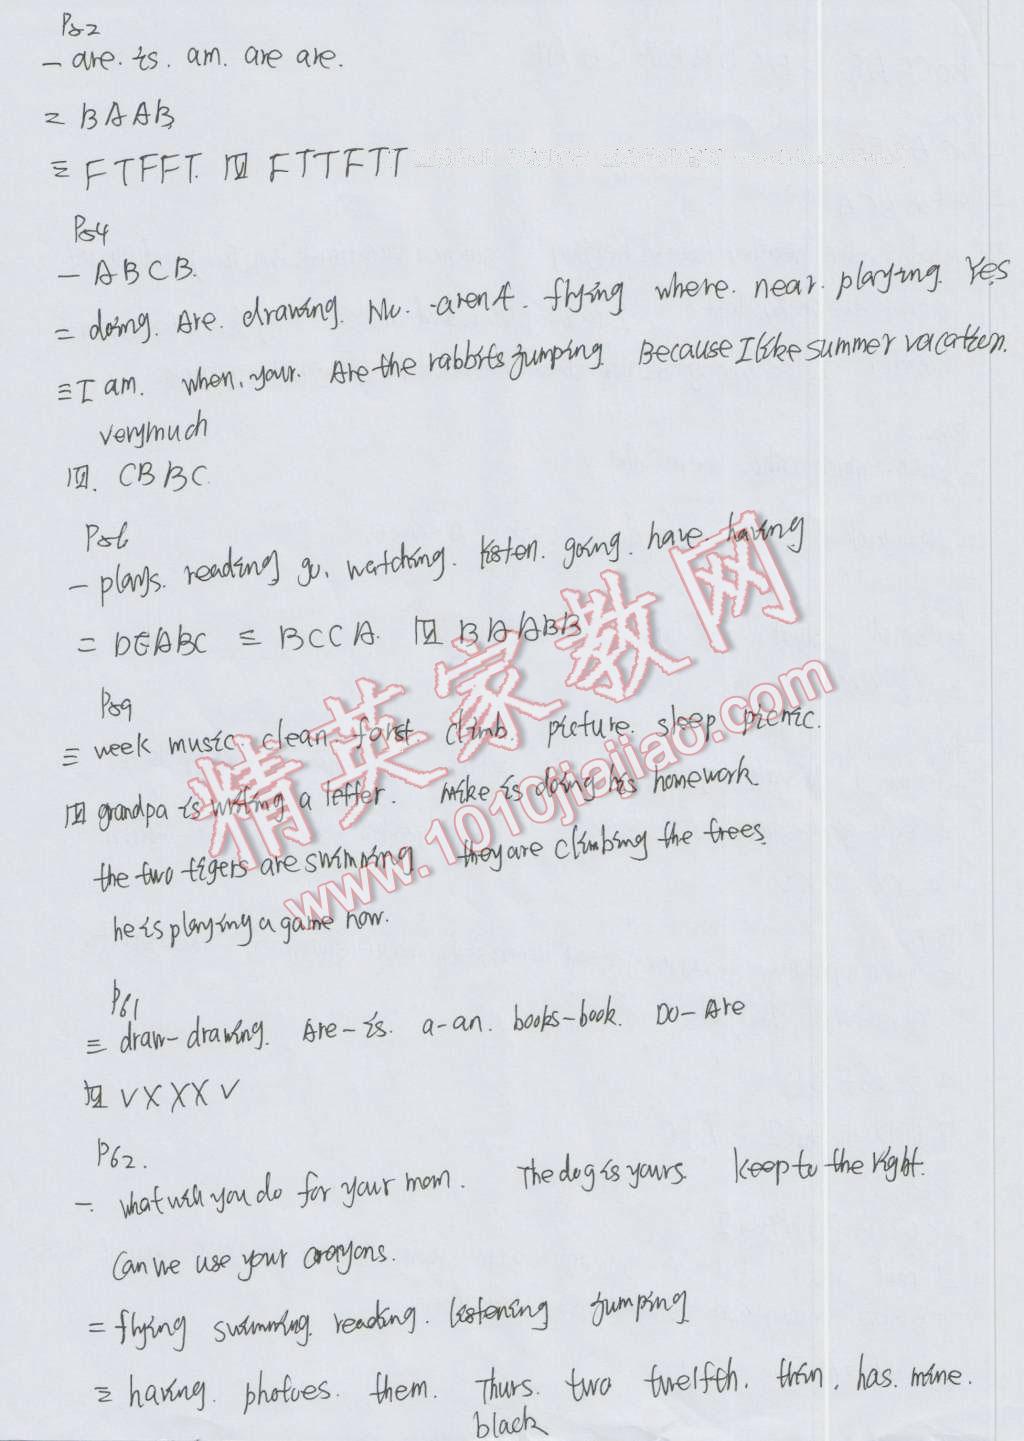 P52
一 are. is. am. are are.
二 BAAB
三 FTFFT. 四 FTTFTT
P54
一 ABCB.
二 doing. Are. drawing. No. aren't. flying where. near. playing. Yes
三 I am. when, your. Are the rabbits jumping Because I like summer vacation.
verymuch
四. CBBC.
P56
一 plays. reading go, watching. listen. going. have. having
二 DEABC 三 BCCA. 四 BAABB
P59
三 week music. clean fast climb. picture. sleep picnic.
四 grandpa is writing a letter. Mike is doing his homework
the two tigers are swimming they are climbing the trees.
he is playing a game now.
P61
三 draw-drawing. Are-is. a-an. books-book. Do-Are
四 VXXXV
P62.
一. what will you do for your mom. The dog is yours. keep to the right.
Can we use your crayons.
二 flying swimming. reading. listening jumping
三 having. photoes. them. Thurs. two twelfth. thin. has. mine.
black
精英家教网
www.1010jiajiao.com